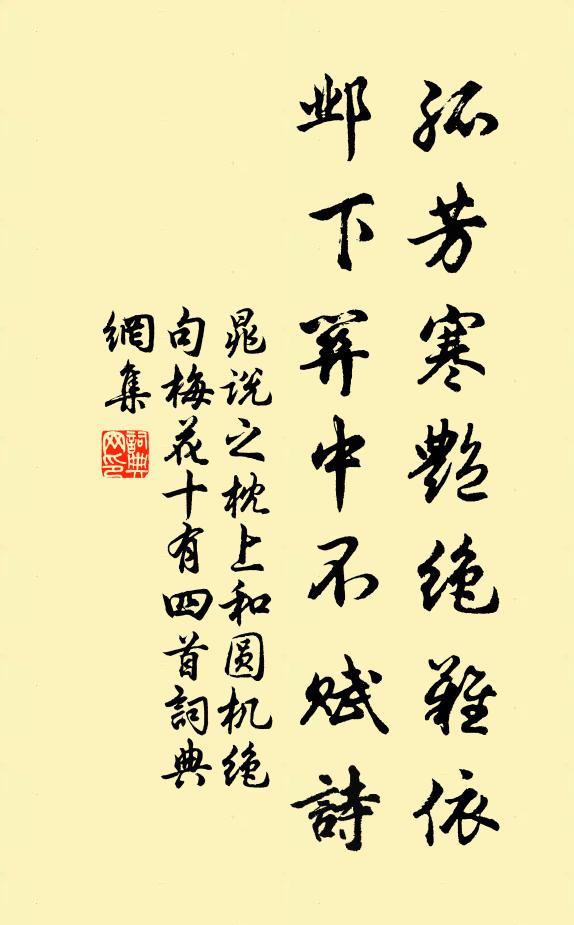 孤芳寒艷絶難依
邺下笄中不赋詩
晁説之枕上和圆机绝
句梅花十有四首詞典
網集
詞典
网印